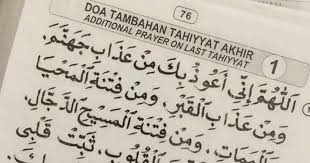 76
DOA TAMBAHAN TAHIYYAT AKHIR
ADDITIONAL PRAYER ON LAST TAHIYYAT
1
اَللّٰهُمَّ اِنِّي اَعُوْذُ بِكَ مِنْ عَذَابِ جَهَنَّمَ.
وَمِنْ عَذَابِ الْقَبْرِ. وَمِنْ فِتْنَةِ الْمَحْيَا
وَالْمَمَاتِ. وَمِنْ فِتْنَةِ الْمَسِيْحِ الدَّجَّالِ.
الْقُلُوْبِ. ثَبِّتْ قَلْبِيْ